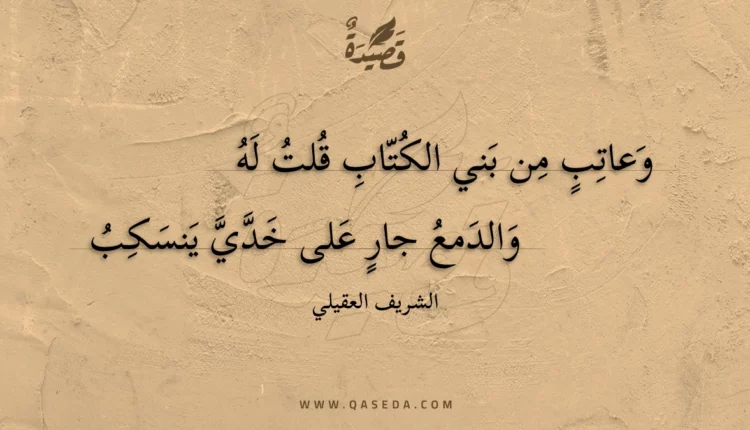 قَصِيدَةٌ
وَعاتِبٍ مِن بَني الكُتّابِ قُلتُ لَهُ
وَالدَمعُ جارٍ عَلى خَدَّيَّ يَنسَكِبُ
الشريف العقيلي
WWW.QASEDA.COM